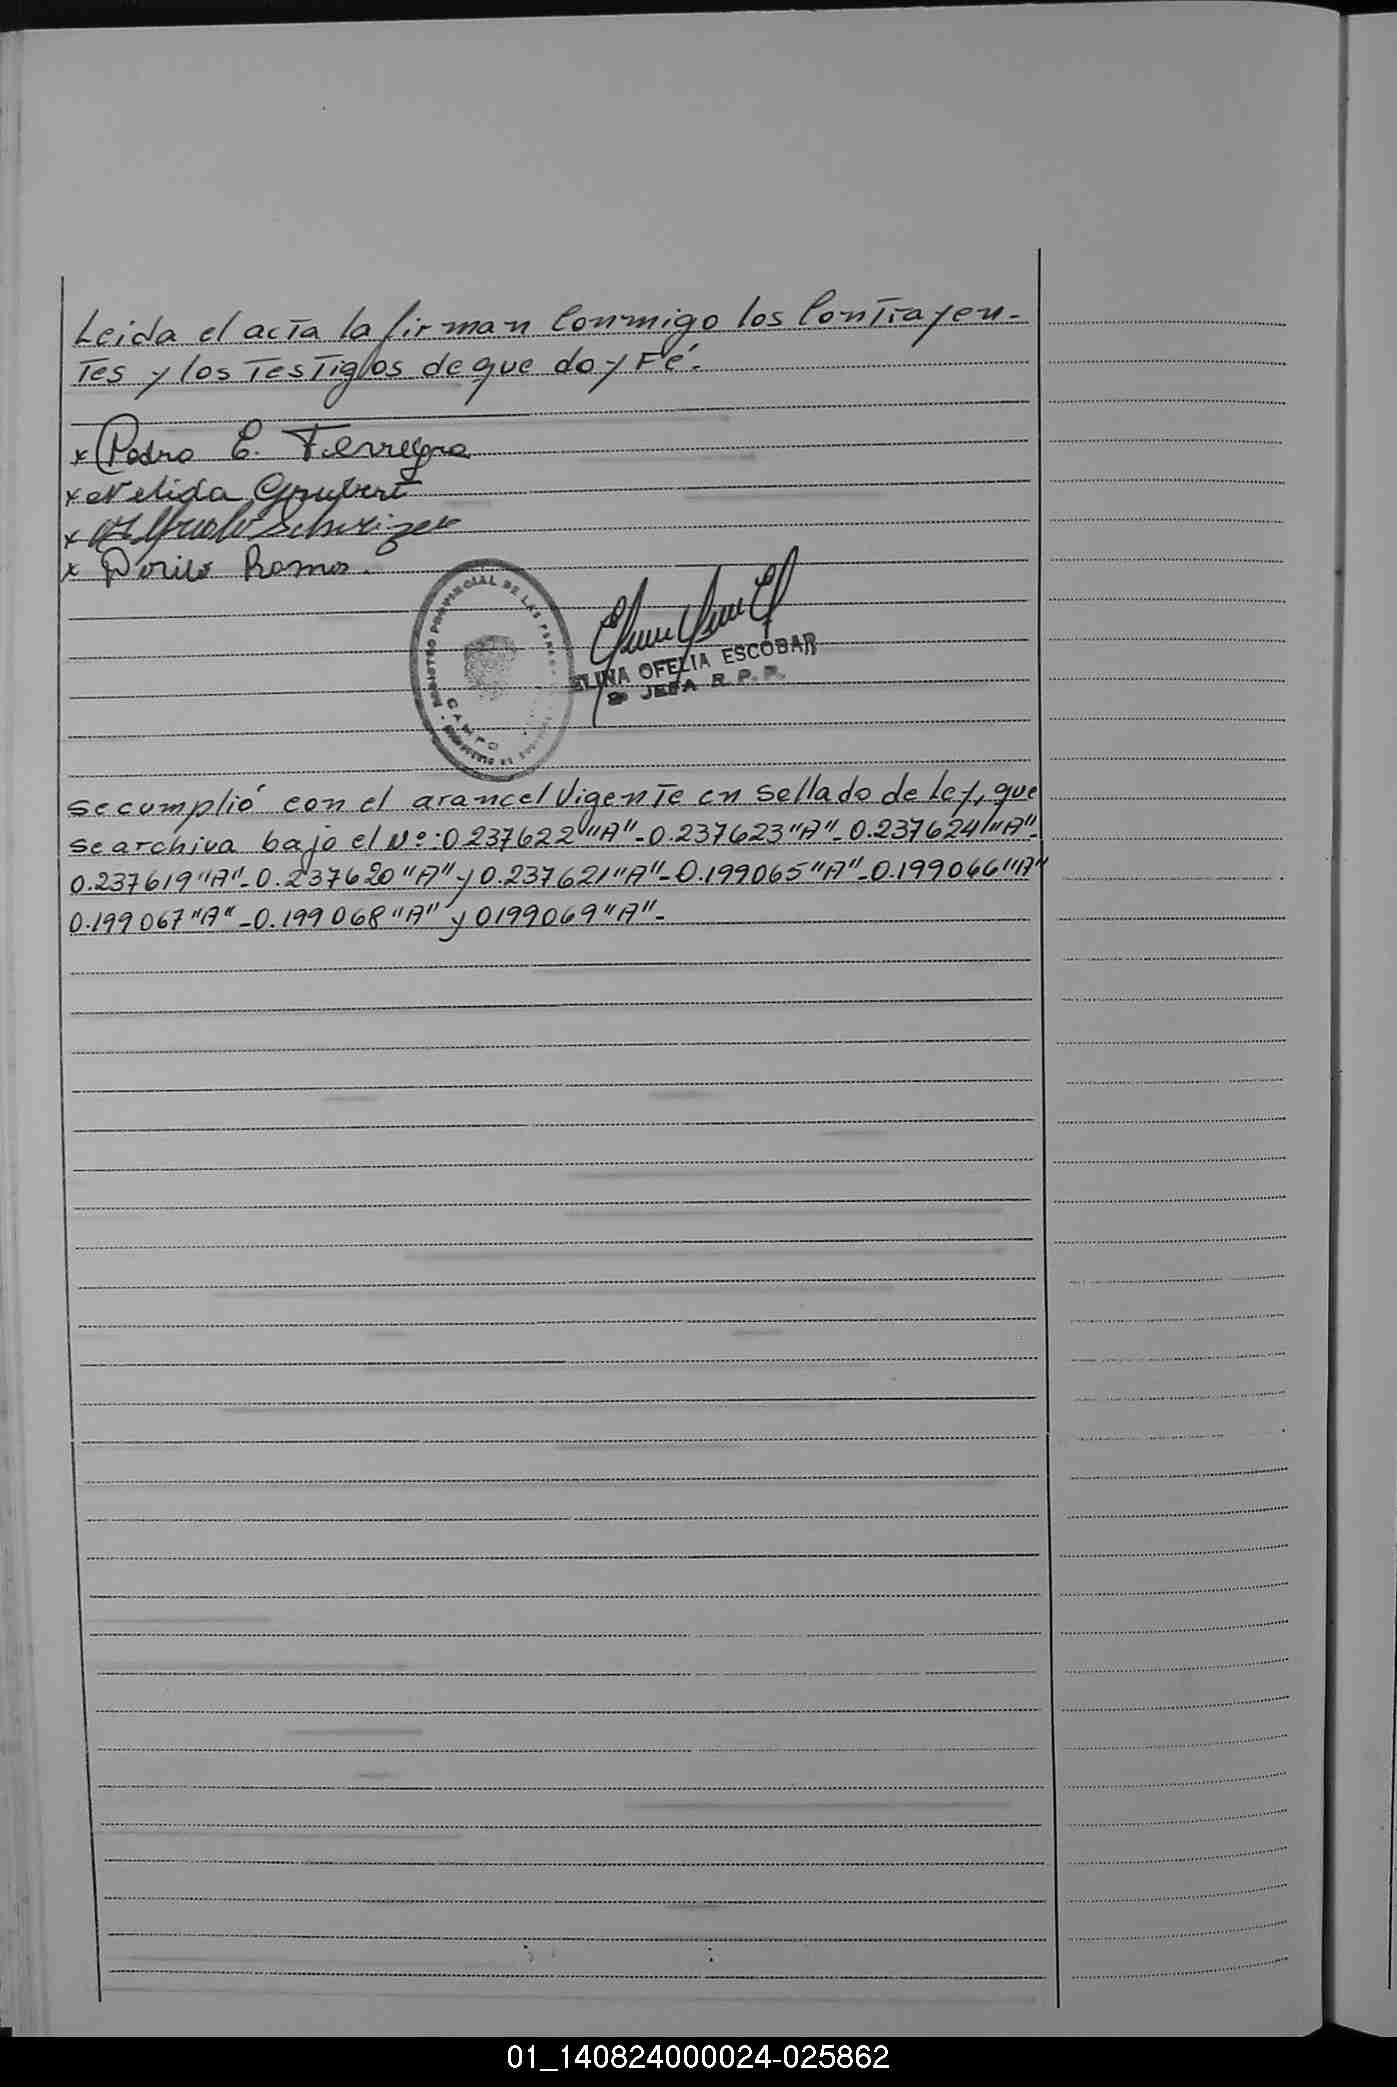 Leida el acta la firman Conmigo los Contrayen-
tes y los Testigos de que doy Fé.
x Pedro E. Ferreyra
x Nelida Grubert
x Schwizer
x Ramos.
REGISTRO PROVINCIAL DE LAS
CAMPO
ELINA OFELIA ESCOBAR
JEFA R. P. P.
se cumplió con el arancel Vigente en Sellado de Ley, que
se archiva bajo el Nº: 0237622 "A" - 0.237623 "A" - 0.237624 "A" -
0.237619 "A" - 0.237620 "A" y 0.237621 "A" - 0.199065 "A" - 0.199066 "A"
0.199067 "A" - 0.199068 "A" y 0199069 "A" -
01_140824000024-025862